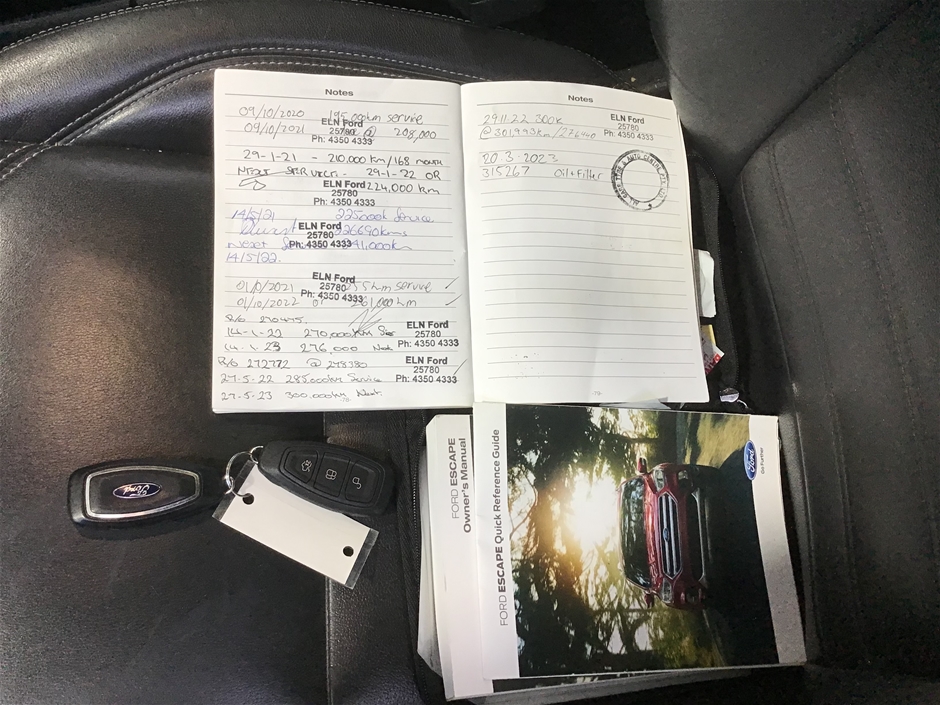 Notes
09/10/2020 195,000km service
ELN Ford
09/10/2021 208,000
25780
Ph: 4350 4333
29-1-21 - 210.000 km/168 month
29-1-22 OR
ELN Ford 224,000 km
25780
Ph: 4350 4333
14/5/21 225000k Service
ELN Ford 226690kms
25780
Next Ph: 4350 4333 241,000k
14/5/22.
ELN Ford
01/10/2021 25780 service
Ph: 4350 4333
01/10/2022 261,000km
R/O 270475.
14-1-22 270,000km
ELN Ford
25780
14-1-23 276,000 Ph: 4350 4333
R/O 272772 @ 278380
ELN Ford
25780
27-5-22 285,000km Service Ph: 4350 4333
27-5-23 300,000km Next.
Notes
29.11.22 300k ELN Ford
25780
@301,993km/27640 Ph: 4350 4333
20.3.2023
315267 Oil+Filter
FORD ESCAPE
Owner's Manual
FORD ESCAPE Quick Reference Guide
Ford
Go Further
Ford